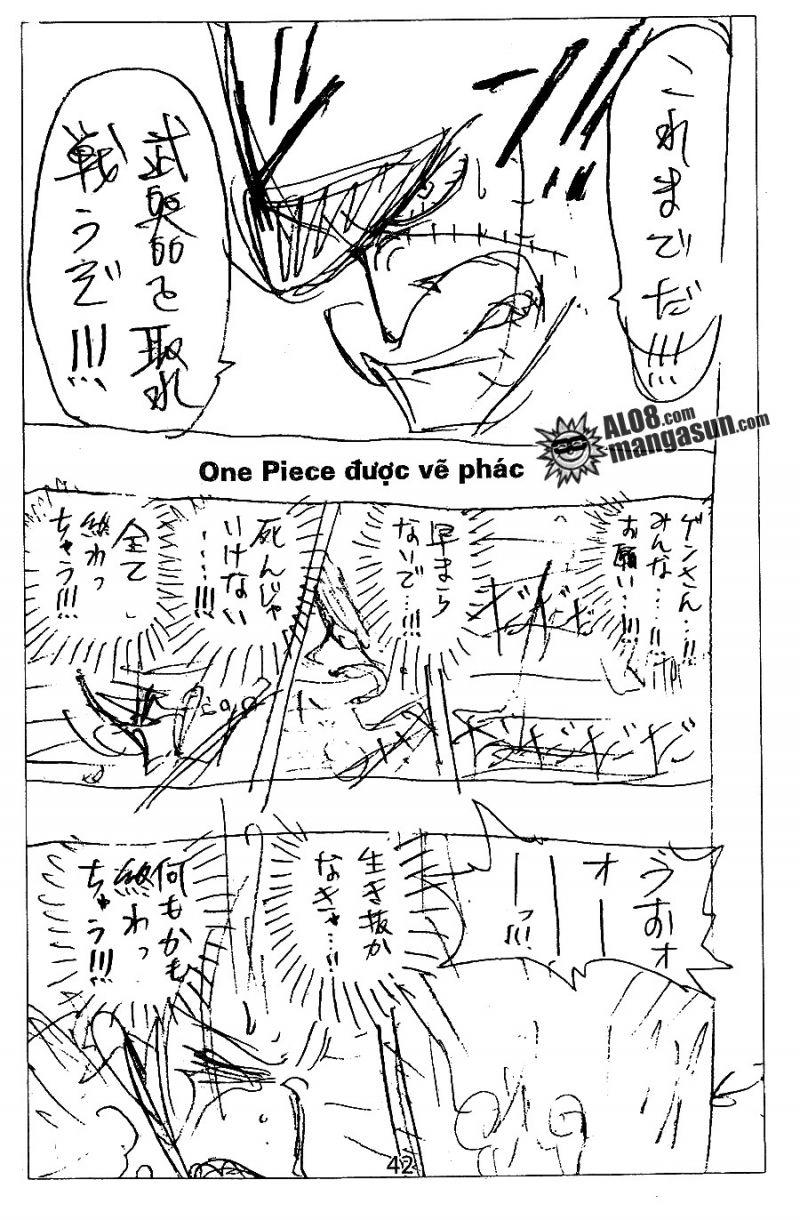 これまでだ!!!
武器を取れ
戦うぞ!!!
AL08.com
mangasun.com
One Piece được vẽ phác
ゲンさん…!!
みんな…!!
お願い…!!!
早まら
ないで…!!!
死んじゃ
いけない
…!!!
全て
終わっ
ちゃう!!!
だだだ
だだだだだ
うおォ
オー
ーーっ!!!
生き抜か
なきゃ…!!
何もかも
終わっ
ちゃう!!!
42